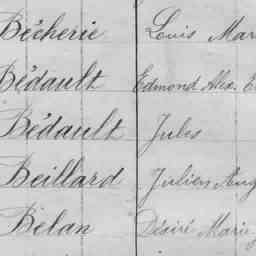 Bécherie Louis Mar
Bédault Edmond Alex. E
Bédault Jules
Beillard Julien Aug
Belan Désiré Marie